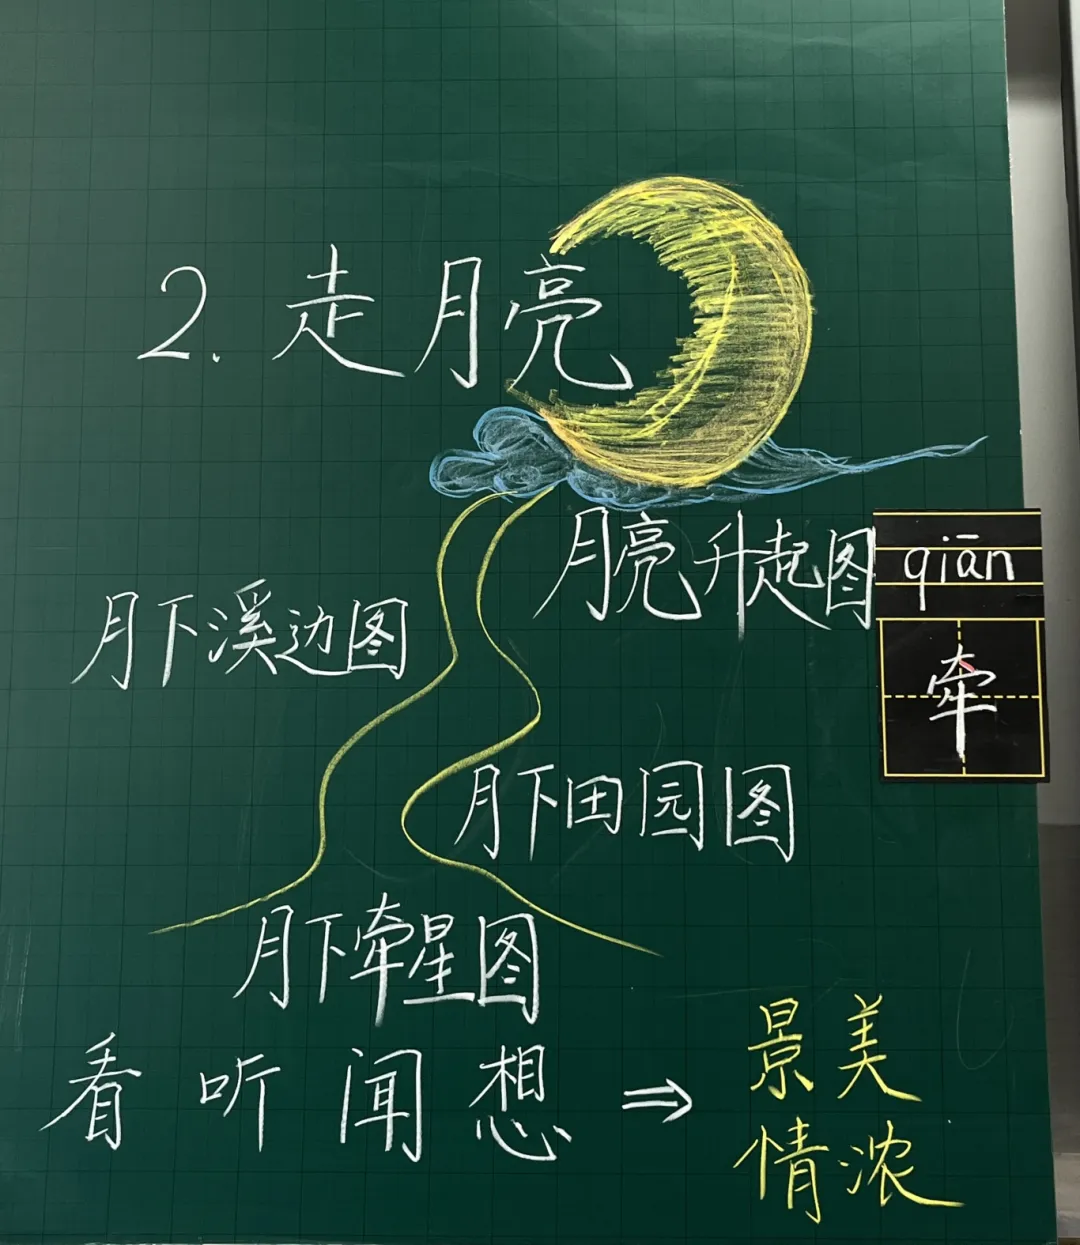 2. 走月亮
月亮升起图
qiān
牵
月下溪边图
月下田园图
月下牵星图
看 听 闻 想 ⇒ 景美
情浓